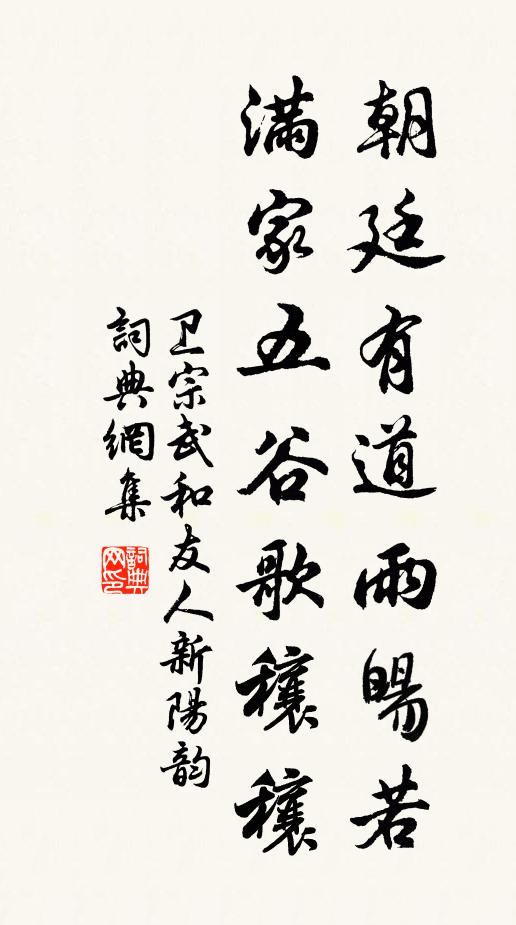 朝廷有道雨暘若
滿家五谷歌穰穰
卫宗武和友人新陽韵
詞典網集
詞典网印